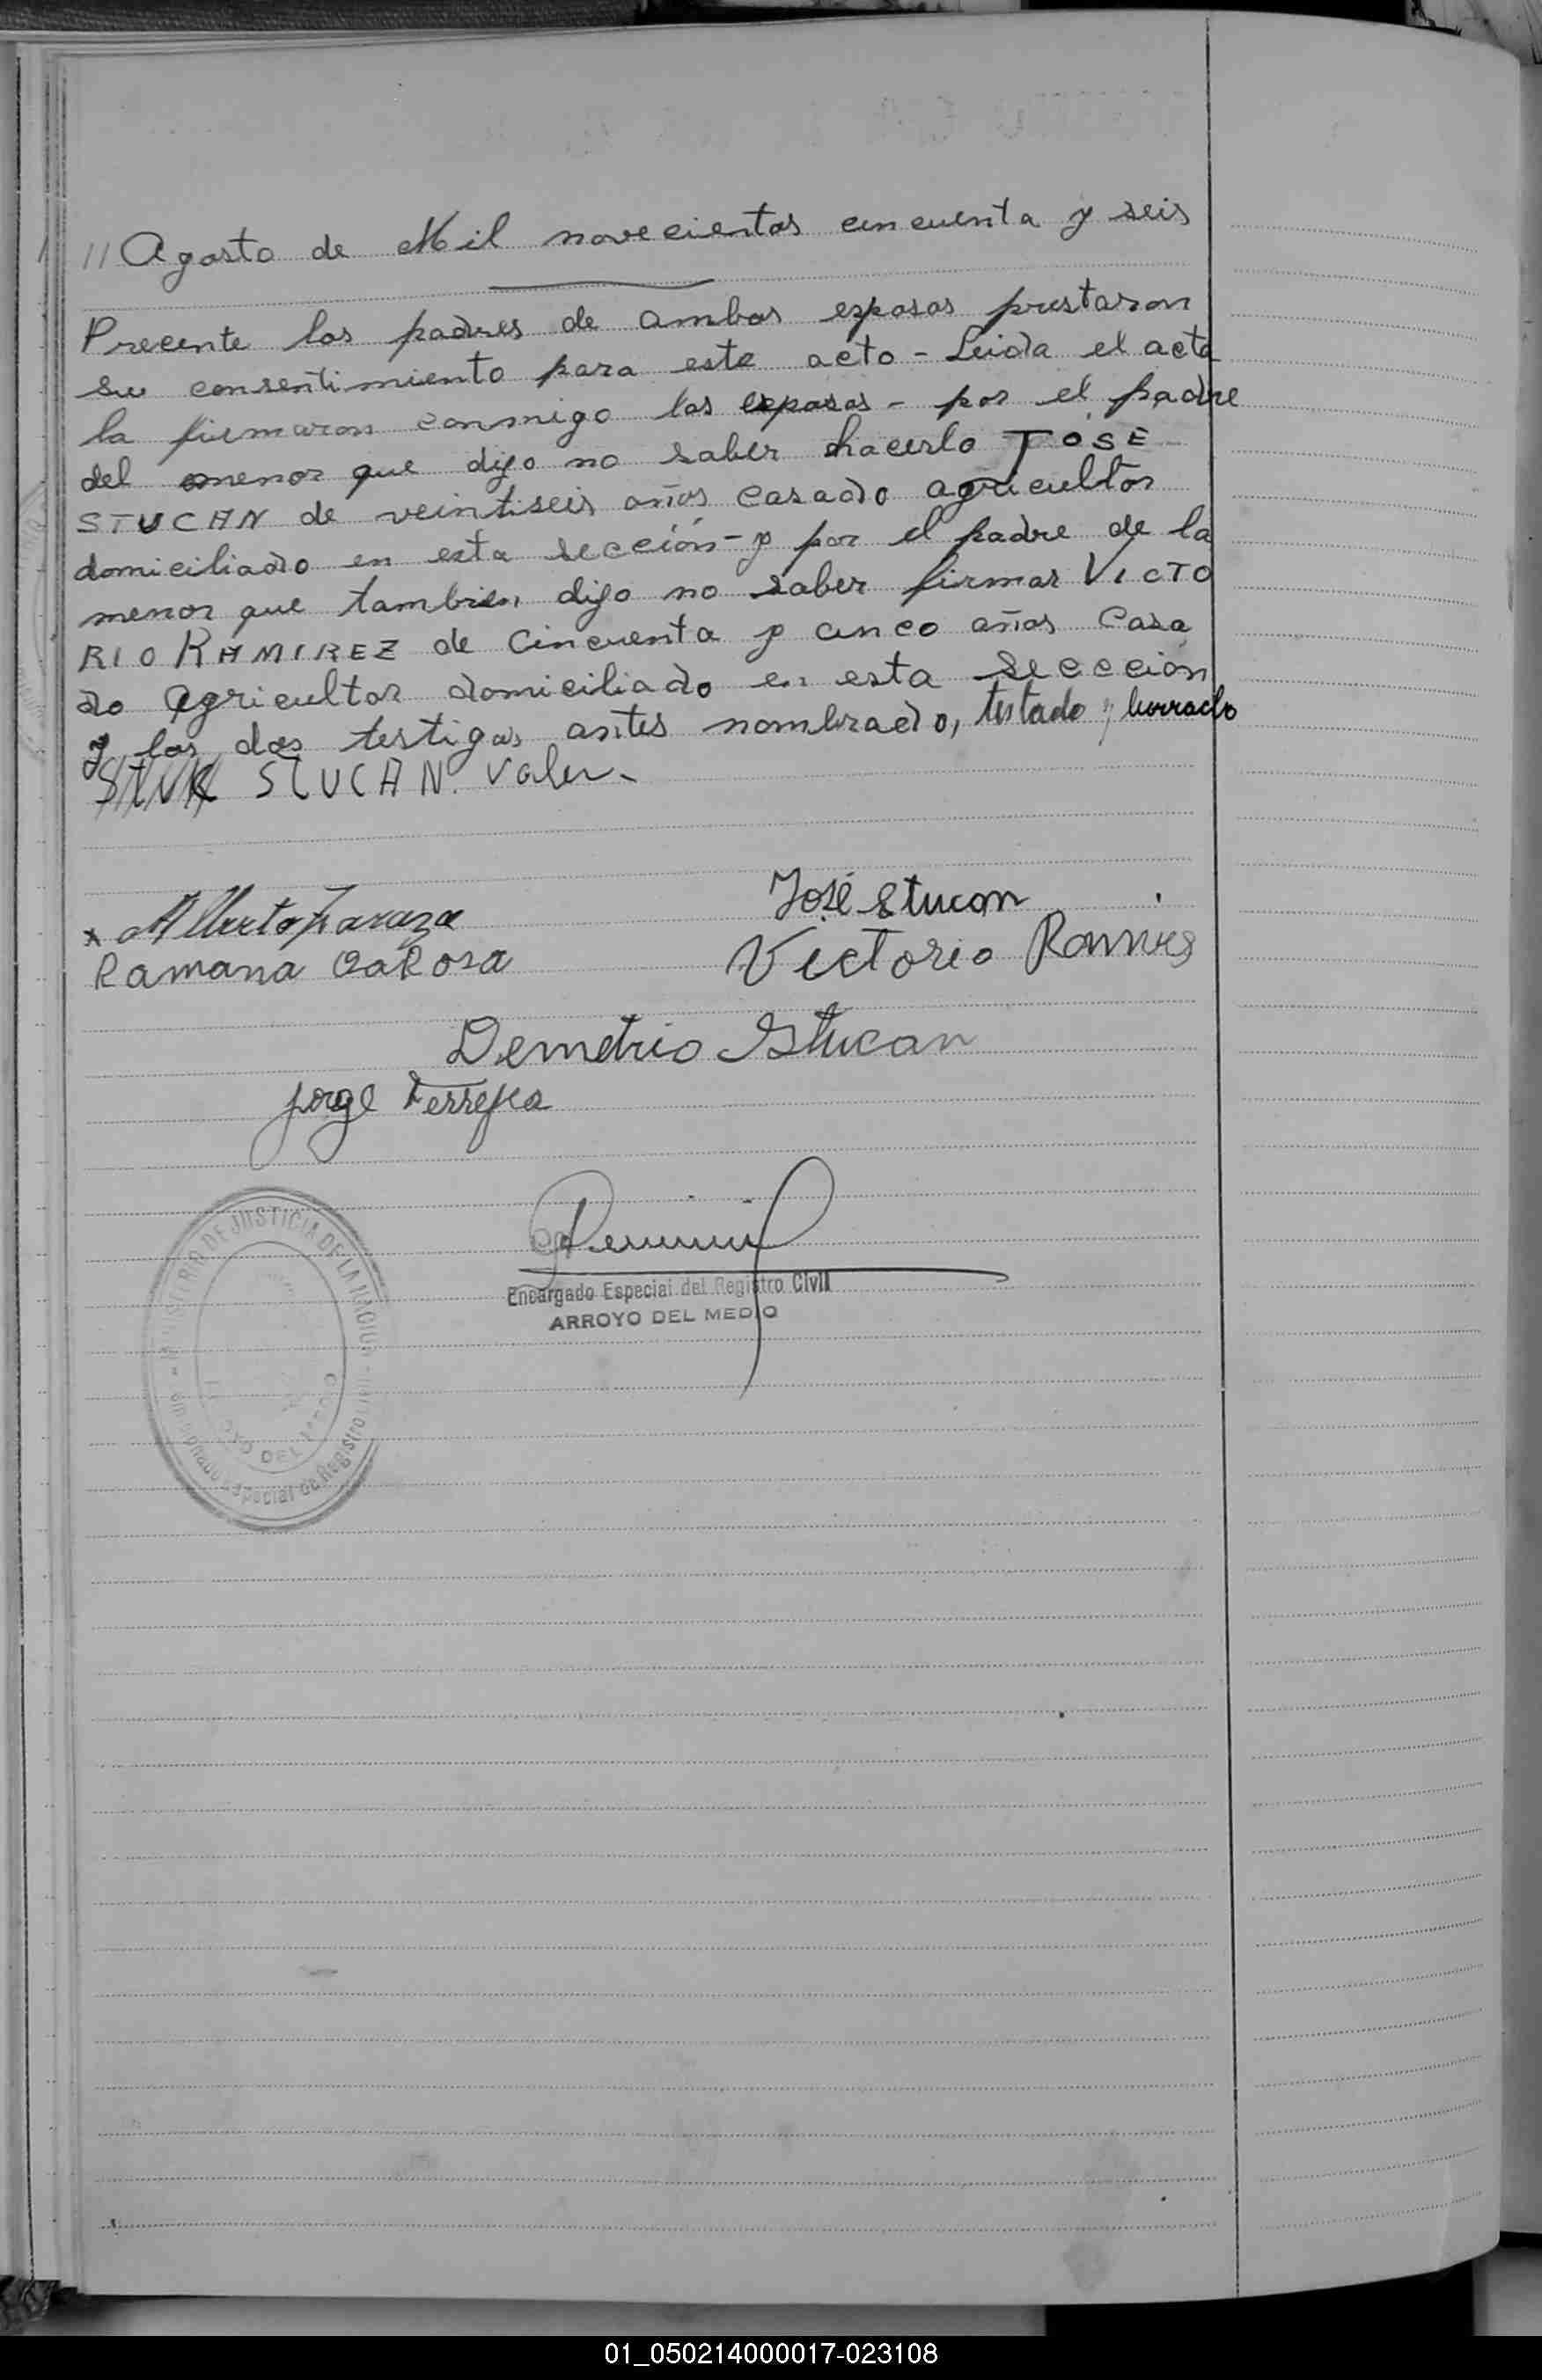 // Agosto de Mil novecientos cincuenta y seis
Precente los padres de ambos esposos prestaron
su consentimiento para este acto - Leida el acta
la firmaron conmigo los esposos - por el padre
del menor que dijo no saber hacerlo JOSE
STUCAN de veintiseis años casado agricultor
domiciliado en esta sección - y por el padre de la
menor que tambien dijo no saber firmar VICTO
RIO RAMIREZ de cincuenta y cinco años casa
do agricultor domiciliado en esta sección
y los dos testigos antes nombrado, testado y borrado
STUK STUCAN. Valen -
José Stucan
x Alberto
Ramana DaRosa
Victorio Ramires
Demetrio Stucan
Jorge
Encargado Especial del Registro Civil
ARROYO DEL MEDIO
MINISTERIO DE JUSTICIA DE LA NACION
Especial de Registro
ARROYO DEL MEDIO
01_050214000017-023108